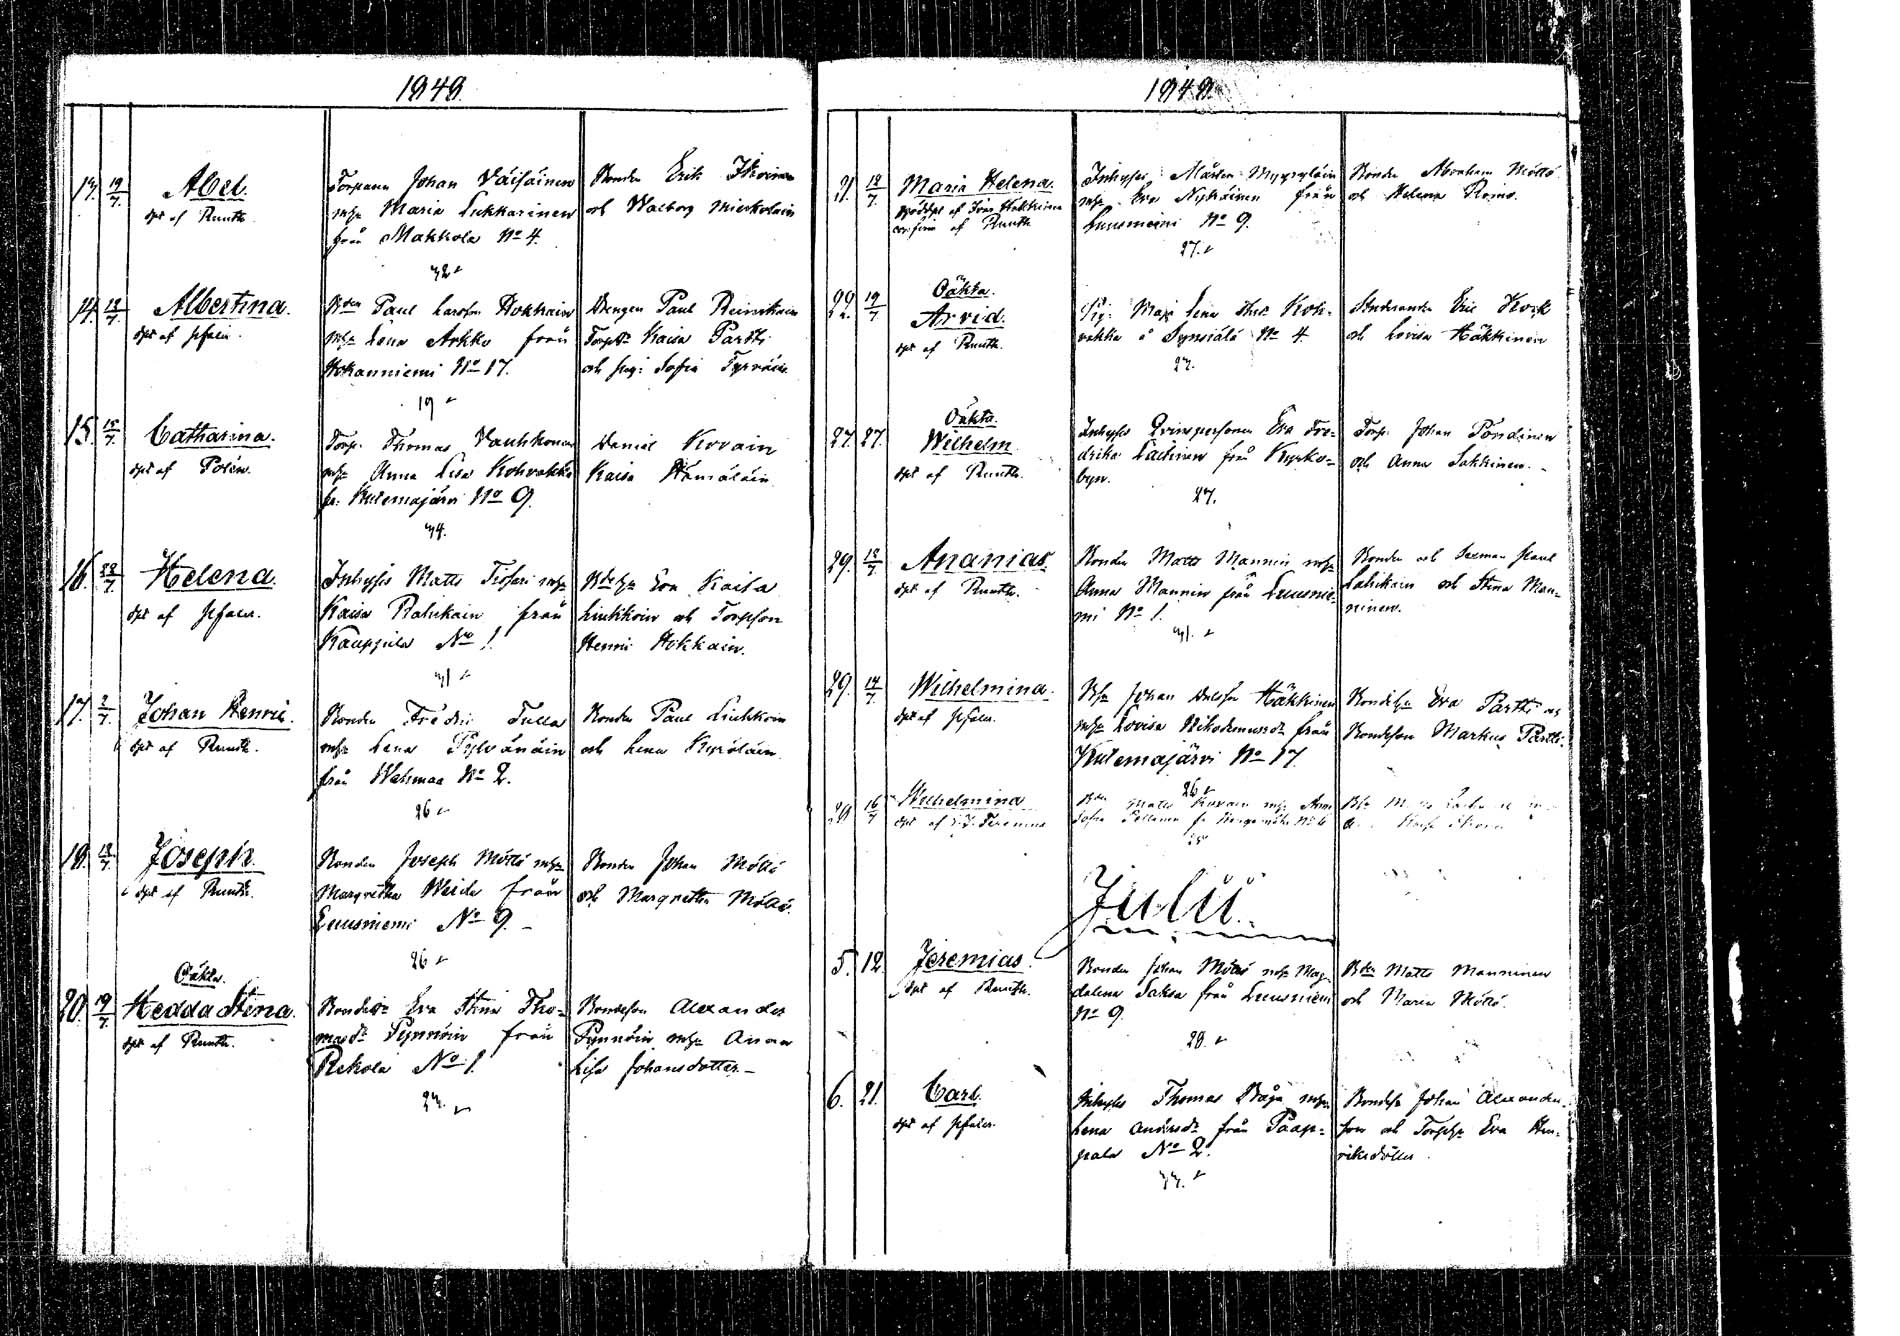 1849.
13. 19/7 Abel.
dpt af Runth.
Torparen Johan Väisäinen
mhu Maria Lukkarinen
från Makkola No 4.
32
Bonden Erik Ikoinen
och Walborg Mieskolain
14. 18/7 Albertina.
dpt af Pfaler.
Bden Paul Larsson Hokkain
mhu Lena Arkko från
Hokanniemi No 17.
19
Drengen Paul Reinikain
Kaisa Partti
och pig: Sofia Tyrväin
15. 15/7 Catharina.
dpt af Polén.
Torp. Thomas Vauhkonen
mhu Anna Lisa Kohvakka
fr. Kutemajärvi No 9.
34.
Daniel Kovain
Kaisa Hämäläin
16. 28/7 Helena.
dpt af Pfaler.
Inhyses Matts mhu
Kaisa Rahikain från
Kauppila No 1.
31
Eva Kaisa
Liukkoin och Torpson
Henric Hokkain.
17. 2/7 Johan Henric.
dpt af Runth.
Bonden Fredric Tulla
mhu Lena Pylvänäin
från Wehmaa No 2.
26
Bonden Paul Liukkoin
och Lena Kyröläin
18. 18/7 Joseph.
dpt af Runth.
Bonden Joseph Möttö mhu
Margretha Weide från
Luusniemi No 9.
26
Bonden Johan Möttö
och Margretha Möttö.
Oäkta.
20. 19/7 Hedda Stina.
dpt af Runth.
Bonded: Eva Stina Tho-
masd: Pynnöin från
Rekola No 1.
23.
Bondeson Alexander
Pynnöin mhu Anna
Lisa Johansdotter.
1849.
21. 18/7 Maria Helena.
nöddpt af Hokkainen
af Runth
Inhyses Mårten Myyryläin
mhu Eva Nykäinen från
Luusniemi No 9.
27.
Bonden Abraham Möttö
och Helena Romo.
Oäkta.
22. 19/7 Arvid.
dpt af Runth.
Pig. Maja Lena Koh-
vakka å Synsiälä No 4.
27.
Eric Kock
och Lovisa Häkkinen
Oäkta.
27. 27. Wilhelm
dpt af Runth.
Inhyses Qvinspersonen Eva Fre-
drika Laitinen från Kyrko-
byn.
27.
Torp. Johan Pöndinen
och Anna Sakkinen.
29. 18/7 Ananias.
dpt af Runth.
Bonden Matts Mannin mhu
Anna Mannin från Luusnie-
mi No 1.
31.
Bonden och Sexman Paul
Lahikain och Stina Man-
ninen.
29. 14/7 Wilhelmina.
dpt af Pfaler.
Johan Häkkinen
mhu Lovisa Nikodemusd: från
Kutemajärvi No 17.
26
Bondehu Eva Partti och
Bondeson Markus Partti.
16/7 Wilhelmina
dpt af
Bden Matts Kovain mhu Anna
Sofia Pöllänen fr No 6
25
Julii.
5. 12. Jeremias.
dpt af Runth.
Bonden Johan Möttö mhu Mag-
dalena Saksa från Luusniemi
No 9.
28.
Bden Matts Manninen
och Maria Möttö.
6. 21. Carl.
dpt af Pfaler.
Inhyses Thomas mhu
Lena Andersd: från Paap-
pala No 2.
33.
Bondeson Johan Alexander-
son och Torphu Eva Hen-
riksdotter.